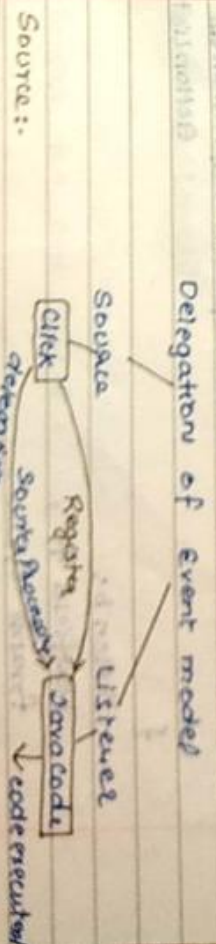 Delegation of Event model
Source
Listener
Click
Register
Java Code
code execution
Source:-